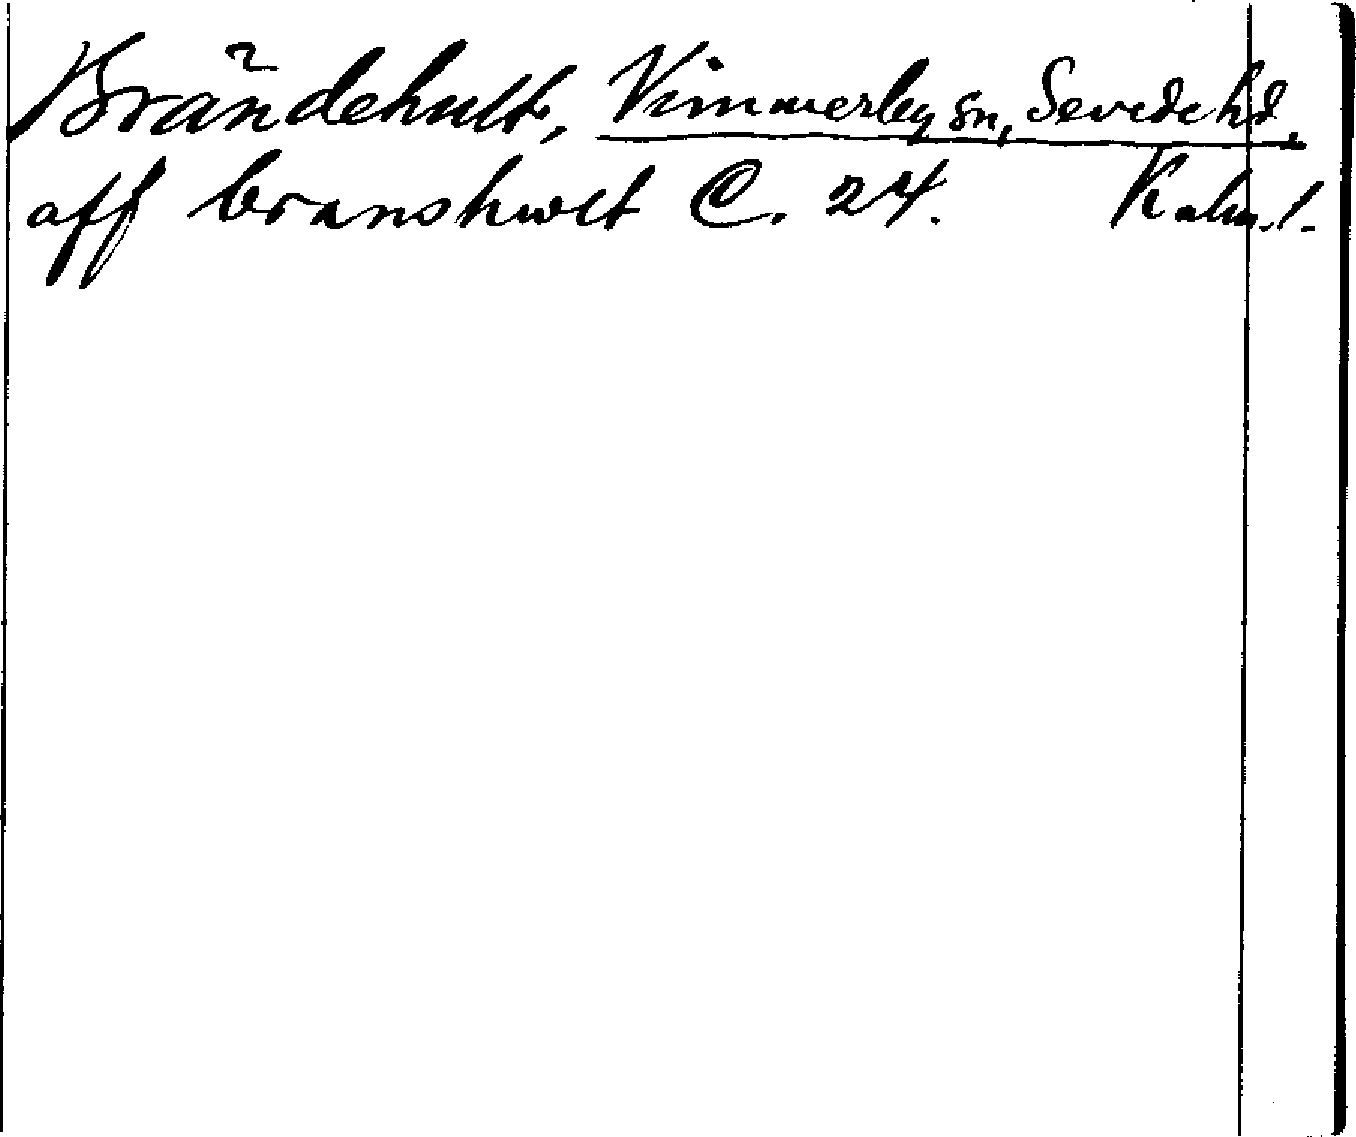 Brändehult, Vimmerby sn, Sevede hd,
aff branshwlt C. 24. Kalm. l.